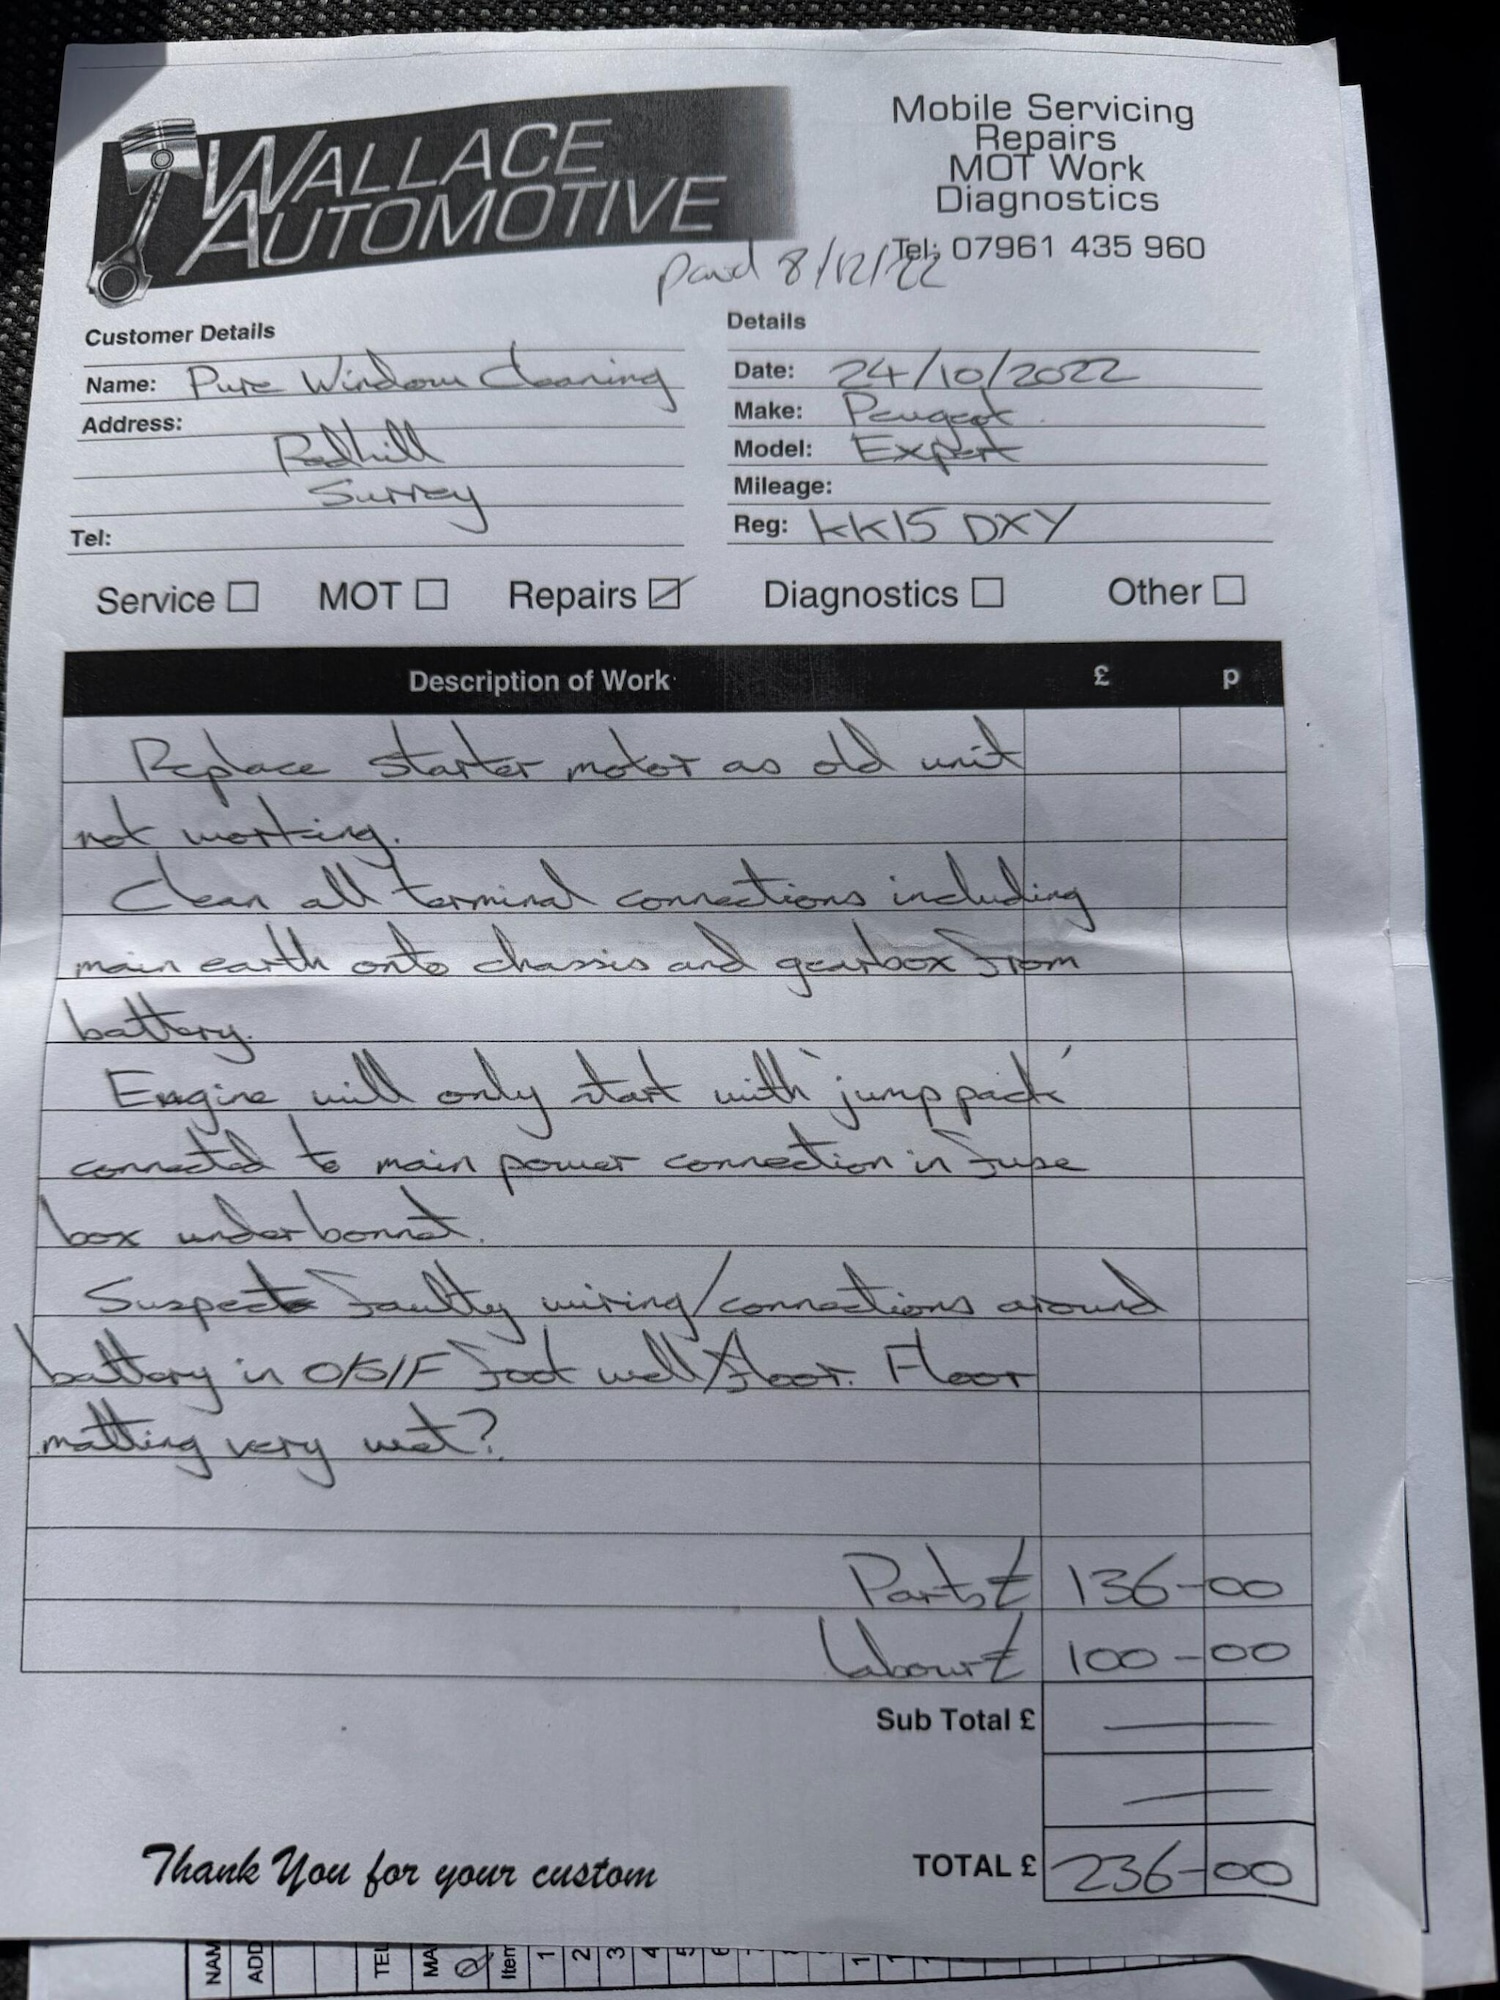 WALLACE
AUTOMOTIVE
Mobile Servicing
Repairs
MOT Work
Diagnostics
Tel: 07961 435 960
paid 8/12/22
Customer Details
Name: Pure Window Cleaning
Address:
Redhill
Surrey
Tel:
Details
Date: 24/10/2022
Make: Peugeot
Model: Expert
Mileage:
Reg: KK15 DXY
Service MOT Repairs Diagnostics Other
Description of Work £ p
Replace starter motor as old unit
not working.
Clean all terminal connections including
main earth onto chassis and gearbox from
battery.
Engine will only start with 'jump pack'
connected to main power connection in fuse
box under bonnet.
Suspect faulty wiring/connections around
battery in O/S/F foot well/floor. Floor
matting very wet?
Parts £ 136-00
Labour £ 100-00
Sub Total £
TOTAL £ 236-00
Thank You for your custom
NAM
ADD
TEL
MA
Item
1
2
3
4
5
6